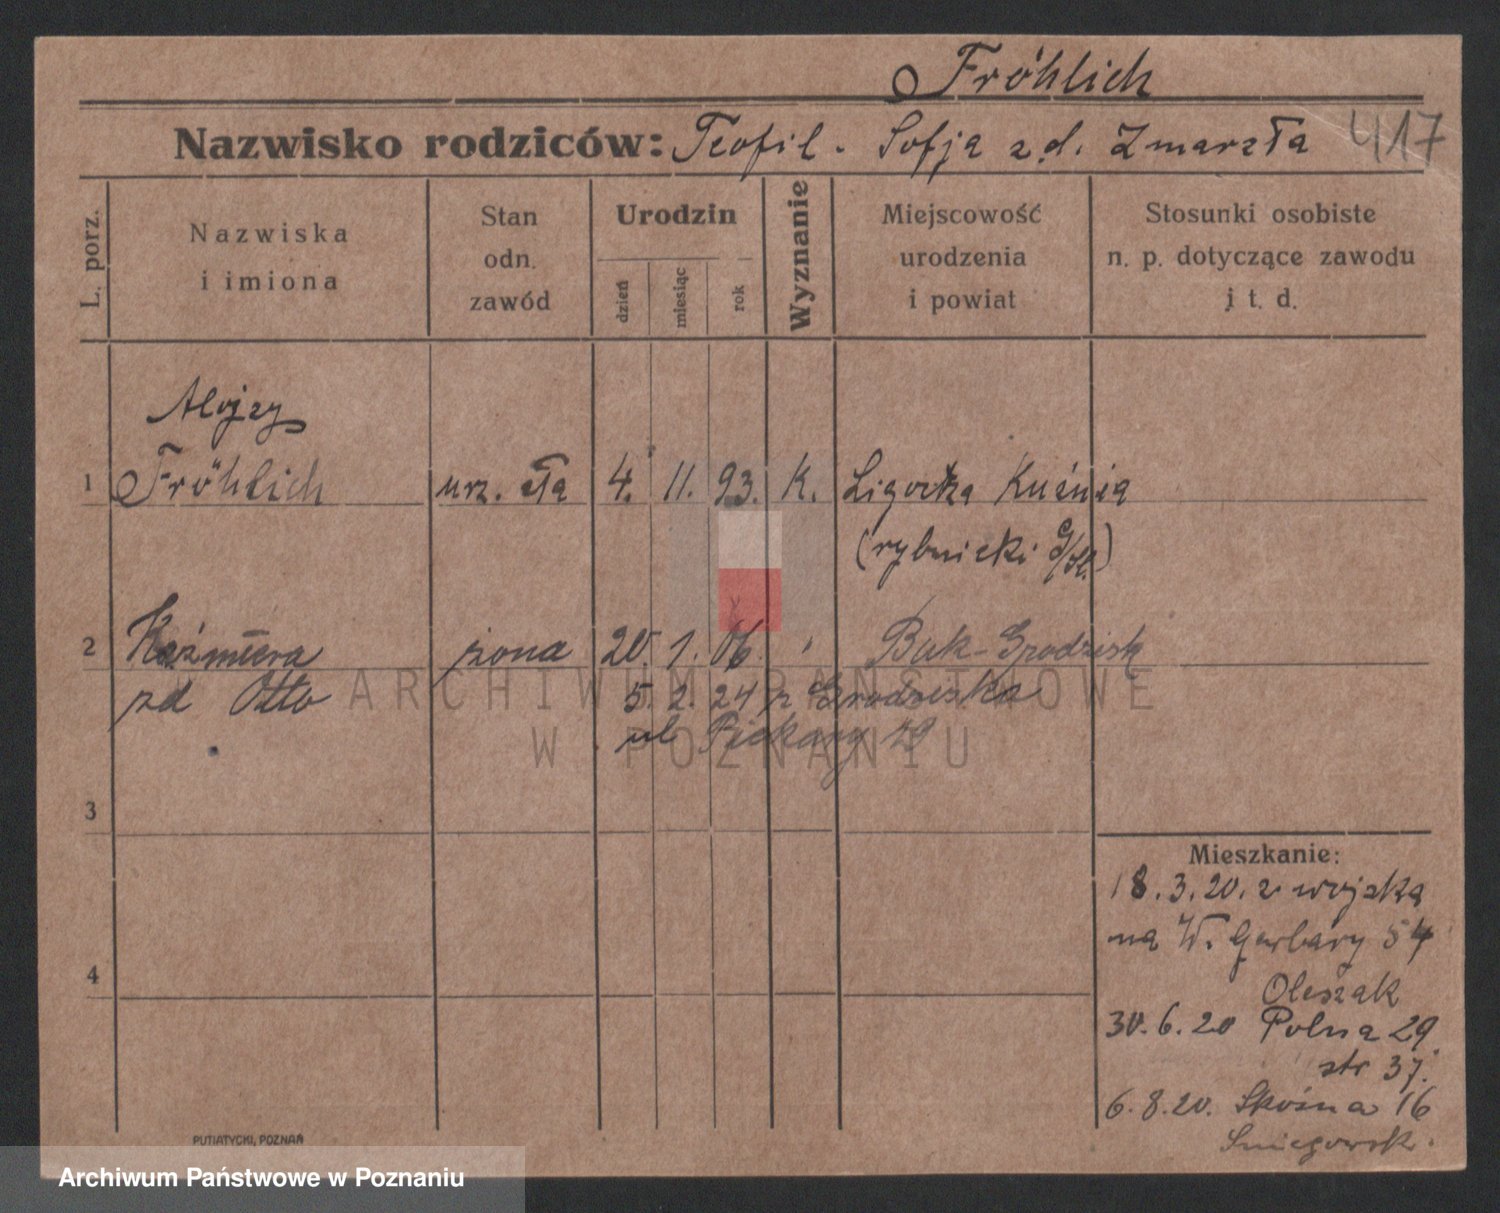 Fröhlich
Nazwisko rodziców: Teofil - Sofja z d. Zmarzła 417
L. porz.
Nazwiska
i imiona
Stan
odn.
zawód
Urodzin
dzień
miesiąc
rok
Wyznanie
Miejscowość
urodzenia
i powiat
Stosunki osobiste
n. p. dotyczące zawodu
j t. d.
Alojzy
1 Fröhlich urz. cła 4. 11. 93. K. Ligocka Kuźnia
(rybnicki G/Śl.)
2 Kaźmiera żona 20. 1. 06. " Buk-Grodzisk
zd Otto 5. 2. 24 z Grodziska
ul Piekary 19
3
4
Mieszkanie:
18.3.20. z wojska
na W. Garbary 54
Oleszak
30.6.20 Polna 29
str 37.
6.8.20. Skośna 16
PUTIATYCKI, POZNAŃ
ARCHIWUM PAŃSTWOWE
W POZNANIU
Archiwum Państwowe w Poznaniu